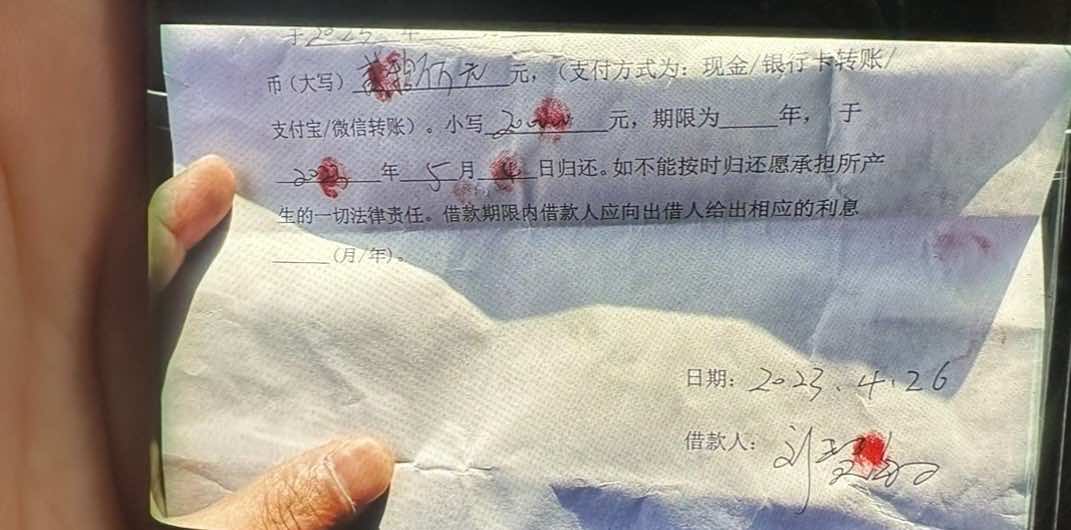 于2023年
币(大写) 元,(支付方式为:现金/银行卡转账/
支付宝/微信转账)。小写 元,期限为 年, 于
2023年5月 日归还。如不能按时归还愿承担所产
生的一切法律责任。借款期限内借款人应向出借人给出相应的利息
(月/年)。
日期:2023.4.26
借款人:刘